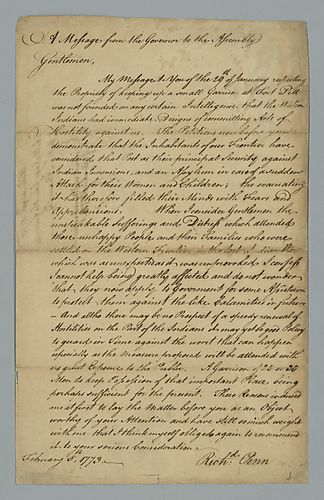 A Message from the Governor to the Assembly
Gentlemen,
My Message to You of the 29th of January respecting
the Propriety of keeping up a small Garrison at Fort Pitt
was not founded on any certain Intelligence that the Western
Indians had immediate Designs of committing Acts of
Hostility against us. The Petitions now before you
demonstrate that the Inhabitants of our Frontier have
considered that Post as their principal Security against
Indian Incursions, and an Asylum in case of a sudden
Attack for their Women and Children; the evacuating
it has therefore filled their Minds with Fears and
Apprehensions. When I consider Gentlemen the
unspeakable Sufferings and Distress which attended
those unhappy People and their Families who were
settled on the Western Frontier in the last Indian War
which was as unexpected as it was unprovoked I confess
I cannot help being greatly affected and do not wonder
that they now apply to Government for some Assistance
to protect them against the like Calamities in future
And altho there may be no Prospect of a speedy renewal of
Hostilities on the Part of the Indians it may yet be good Policy
to guard in Time against the worst that can happen
especially as the Measure proposed will be attended with
no great Expence to the Public. A Garrison of 25 or 30
Men to keep Possession of that important Place being
perhaps sufficient for the present. These Reasons induced
me at first to lay the Matter before you as an Object
worthy of your Attention and have still so much weight
with me that I think myself obliged again to recommend
it to your serious Consideration.
Richd. Penn
February 5th 1773.